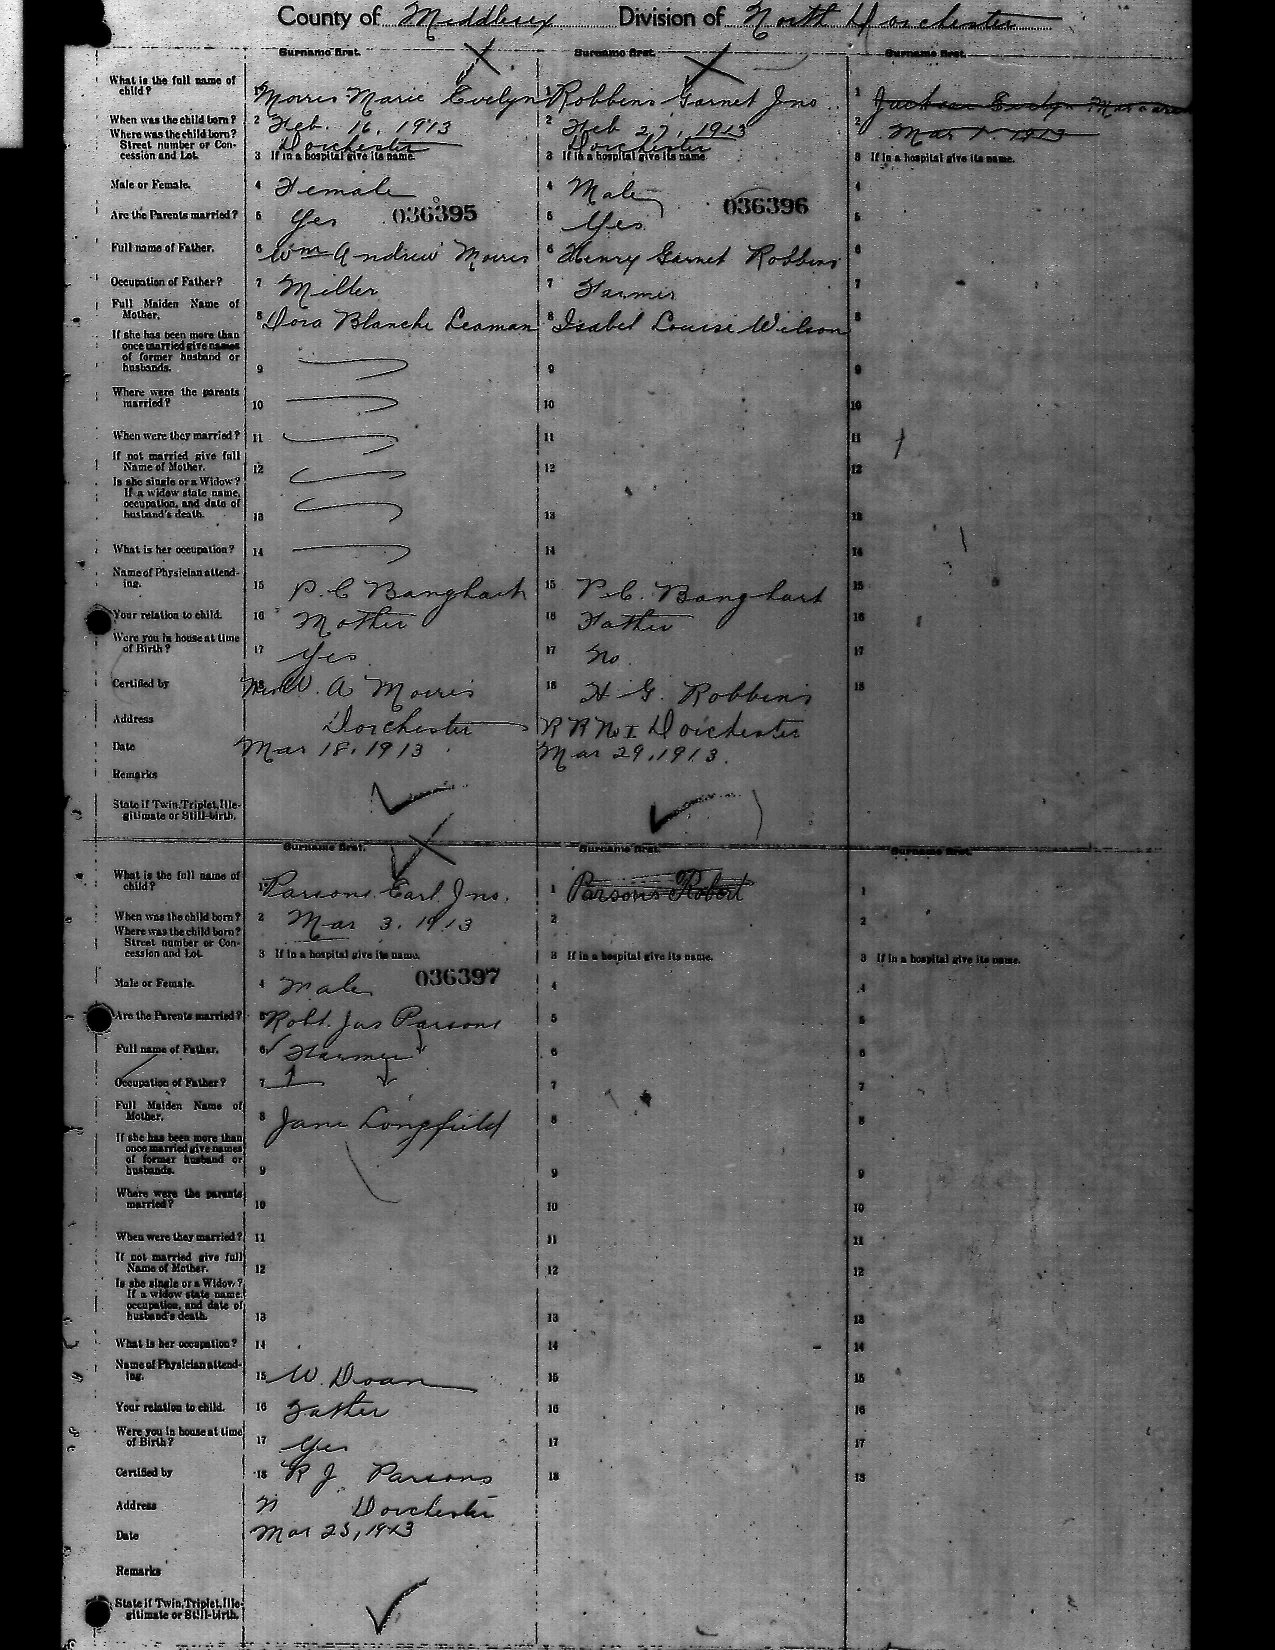 County of Middlesex Division of North Dorchester
Surname first. Surname first. Surname first.
What is the full name of
child?
1 Morris Marie Evelyn 1 Robbins Garnet Jno. 1 Jackson Evelyn
When was the child born? 2 Feb. 16, 1913 2 Feb 27, 1913 2 Mar 1913
Where was the child born? Dorchester Dorchester
Street number or Con-
cession and Lot. 3 If in a hospital give its name. 3 If in a hospital give its name. 3 If in a hospital give its name.
Male or Female. 4 Female 4 Male 4
Are the Parents married? 5 Yes 036395 5 Yes 036396 5
Full name of Father. 6 Wm Andrew Morris 6 Henry Garnet Robbins 6
Occupation of Father? 7 Miller 7 Farmer 7
Full Maiden Name of
Mother. 8 Dora Blanche Leaman 8 Isabel Louise Wilson 8
If she has been more than
once married give names
of former husband or
husbands. 9 9 9
Where were the parents
married? 10 10 10
When were they married? 11 11 11
If not married give full
Name of Mother. 12 12 12
Is she single or a Widow?
If a widow state name,
occupation, and date of
husband's death. 13 13 13
What is her occupation? 14 14 14
Name of Physician attend-
ing. 15 P. C Banghart 15 P. C. Banghart 15
Your relation to child. 16 Mother 16 Father 16
Were you in house at time
of Birth? 17 Yes 17 No. 17
Certified by 18 Mrs W. A Morris 18 H G. Robbins 18
Address Dorchester R R No 1 Dorchester
Date Mar 18, 1913 Mar 29, 1913.
Remarks
State if Twin, Triplet, Ille-
gitimate or Still-birth.
Surname first. Surname first. Surname first.
What is the full name of
child? 1 Parsons Earl Jno. 1 Parsons Robert 1
When was the child born? 2 Mar 3. 1913 2 2
Where was the child born?
Street number or Con-
cession and Lot. 3 If in a hospital give its name. 3 If in a hospital give its name. 3 If in a hospital give its name.
Male or Female. 4 Male 036397 4 4
Are the Parents married? 5 Robt. Jas Parsons 5 5
Full name of Father. 6 Farmer 6 6
Occupation of Father? 7 7 7
Full Maiden Name of
Mother. 8 Jane Longfield 8 8
If she has been more than
once married give names
of former husband or
husbands. 9 9 9
Where were the parents
married? 10 10 10
When were they married? 11 11 11
If not married give full
Name of Mother. 12 12 12
Is she single or a Widow?
If a widow state name,
occupation, and date of
husband's death. 13 13 13
What is her occupation? 14 14 14
Name of Physician attend-
ing. 15 W. Doan 15 15
Your relation to child. 16 Father 16 16
Were you in house at time
of Birth? 17 Yes 17 17
Certified by 18 R J Parsons 18 18
Address N Dorchester
Date Mar 25, 1913
Remarks
State if Twin, Triplet, Ille-
gitimate or Still-birth.